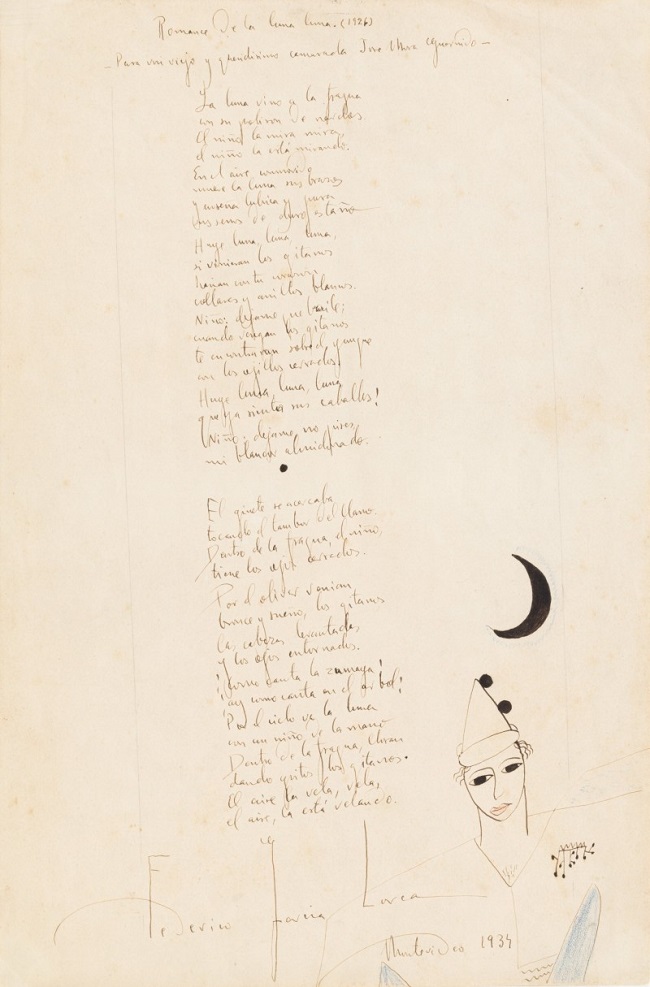 Romance de la luna luna. (1926)
-Para mi viejo y queridisimo camarada Jose Mora Guarnido-
La luna vino a la fragua
con su polison de nardos.
El niño la mira mira,
el niño la está mirando.
En el aire conmovido
mueve la luna sus brazos
y enseña lubrica y pura
sus senos de duro estaño
Huye luna, luna, luna,
si vinieran los gitanos
harian con tu corazon
collares y anillos blancos.
Niño: dejame que baile;
cuando vengan los gitanos
te encontraran sobre el yunque
con los ojillos cerrados.
Huye luna, luna, luna
que ya siento sus caballos!
Niño: dejame, no pises,
mi blancor almidonado.
El ginete se acercaba
tocando el tambor del llano.
Dentro de la fragua, el niño,
tiene los ojos cerrados.
Por el olivar venian
bronce y sueño, los gitanos
las cabezas levantadas,
y los ojos entornados.
¡Como canta la zumaya!
¡ay como canta en el arbol!
Por el cielo va la luna
con un niño, de la mano
Dentro de la fragua, lloran
dando gritos los gitanos.
El aire la vela, vela,
el aire, la está velando.
Federico Garcia Lorca
Montevideo 1934